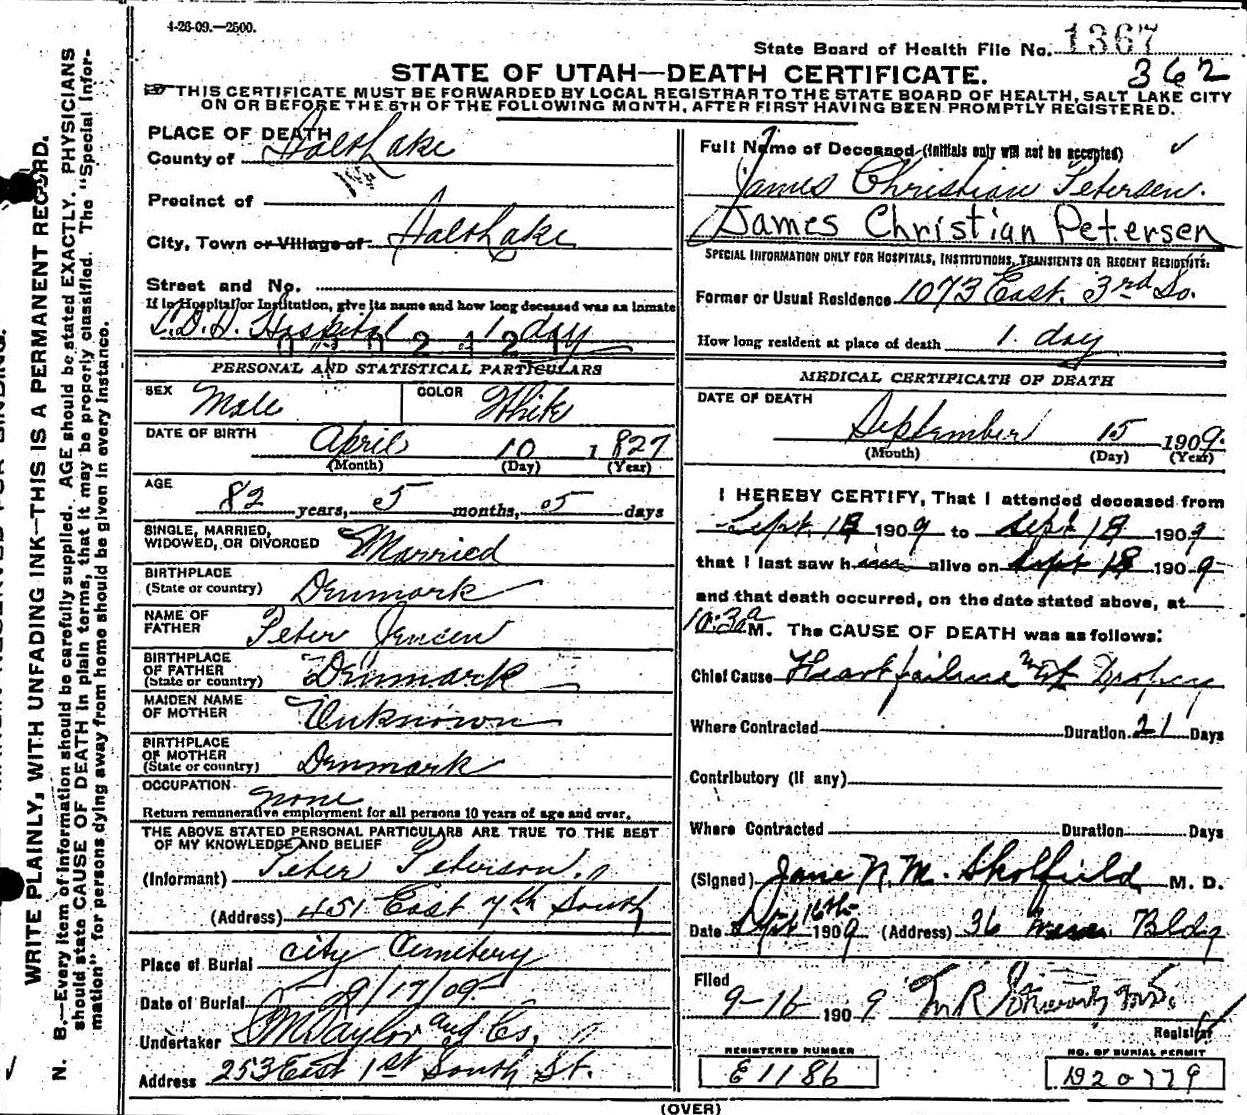 4-26-09.—2500.
State Board of Health File No. 1367
362
STATE OF UTAH—DEATH CERTIFICATE.
THIS CERTIFICATE MUST BE FORWARDED BY LOCAL REGISTRAR TO THE STATE BOARD OF HEALTH, SALT LAKE CITY
ON OR BEFORE THE 5TH OF THE FOLLOWING MONTH, AFTER FIRST HAVING BEEN PROMPTLY REGISTERED.
WRITE PLAINLY, WITH UNFADING INK—THIS IS A PERMANENT RECORD.
N. B.—Every item of information should be carefully supplied. AGE should be stated EXACTLY. PHYSICIANS
should state CAUSE OF DEATH in plain terms, that it may be properly classified. The "Special Infor-
mation" for persons dying away from home should be given in every instance.
PLACE OF DEATH
County of Salt Lake
Precinct of
City, Town or Village of Salt Lake
Street and No.
If in Hospital or Institution, give its name and how long deceased was an inmate
L.D.S. Hospital 1 day
PERSONAL AND STATISTICAL PARTICULARS
SEX Male COLOR White
DATE OF BIRTH April 10 1827
(Month) (Day) (Year)
AGE 82 years, 5 months, 5 days
SINGLE, MARRIED,
WIDOWED, OR DIVORCED Married
BIRTHPLACE
(State or country) Denmark
NAME OF
FATHER Peter Jensen
BIRTHPLACE
OF FATHER
(State or country) Denmark
MAIDEN NAME
OF MOTHER Unknown
BIRTHPLACE
OF MOTHER
(State or country) Denmark
OCCUPATION none
Return remunerative employment for all persons 10 years of age and over.
THE ABOVE STATED PERSONAL PARTICULARS ARE TRUE TO THE BEST
OF MY KNOWLEDGE AND BELIEF
(Informant) Peter Peterson.
(Address) 451 East 7th South
Place of Burial City Cemetery
Date of Burial 9/17/09.
Undertaker S.M. Taylor and Co.
Address 253 East 1st South St.
Full Name of Deceased (Initials only will not be accepted)
James Christian Petersen.
James Christian Petersen
SPECIAL INFORMATION ONLY FOR HOSPITALS, INSTITUTIONS, TRANSIENTS OR RECENT RESIDENTS:
Former or Usual Residence 1073 East. 3rd So.
How long resident at place of death 1. day
MEDICAL CERTIFICATE OF DEATH
DATE OF DEATH
September 15 1909.
(Month) (Day) (Year)
I HEREBY CERTIFY, That I attended deceased from
Sept. 1909 to Sept 1909
that I last saw him alive on Sept 1909
and that death occurred, on the date stated above, at
10:30 a M. The CAUSE OF DEATH was as follows:
Chief Cause Heart failure with Dropsy
Where Contracted Duration 21 Days
Contributory (if any)
Where Contracted Duration Days
(Signed) Jane N. M. Skolfield M. D.
Date Sept 16th 1909 (Address) 36 Bldg
Filed
9-16 1909
Registrar
REGISTERED NUMBER
E1186
NO. OF BURIAL PERMIT
(OVER)